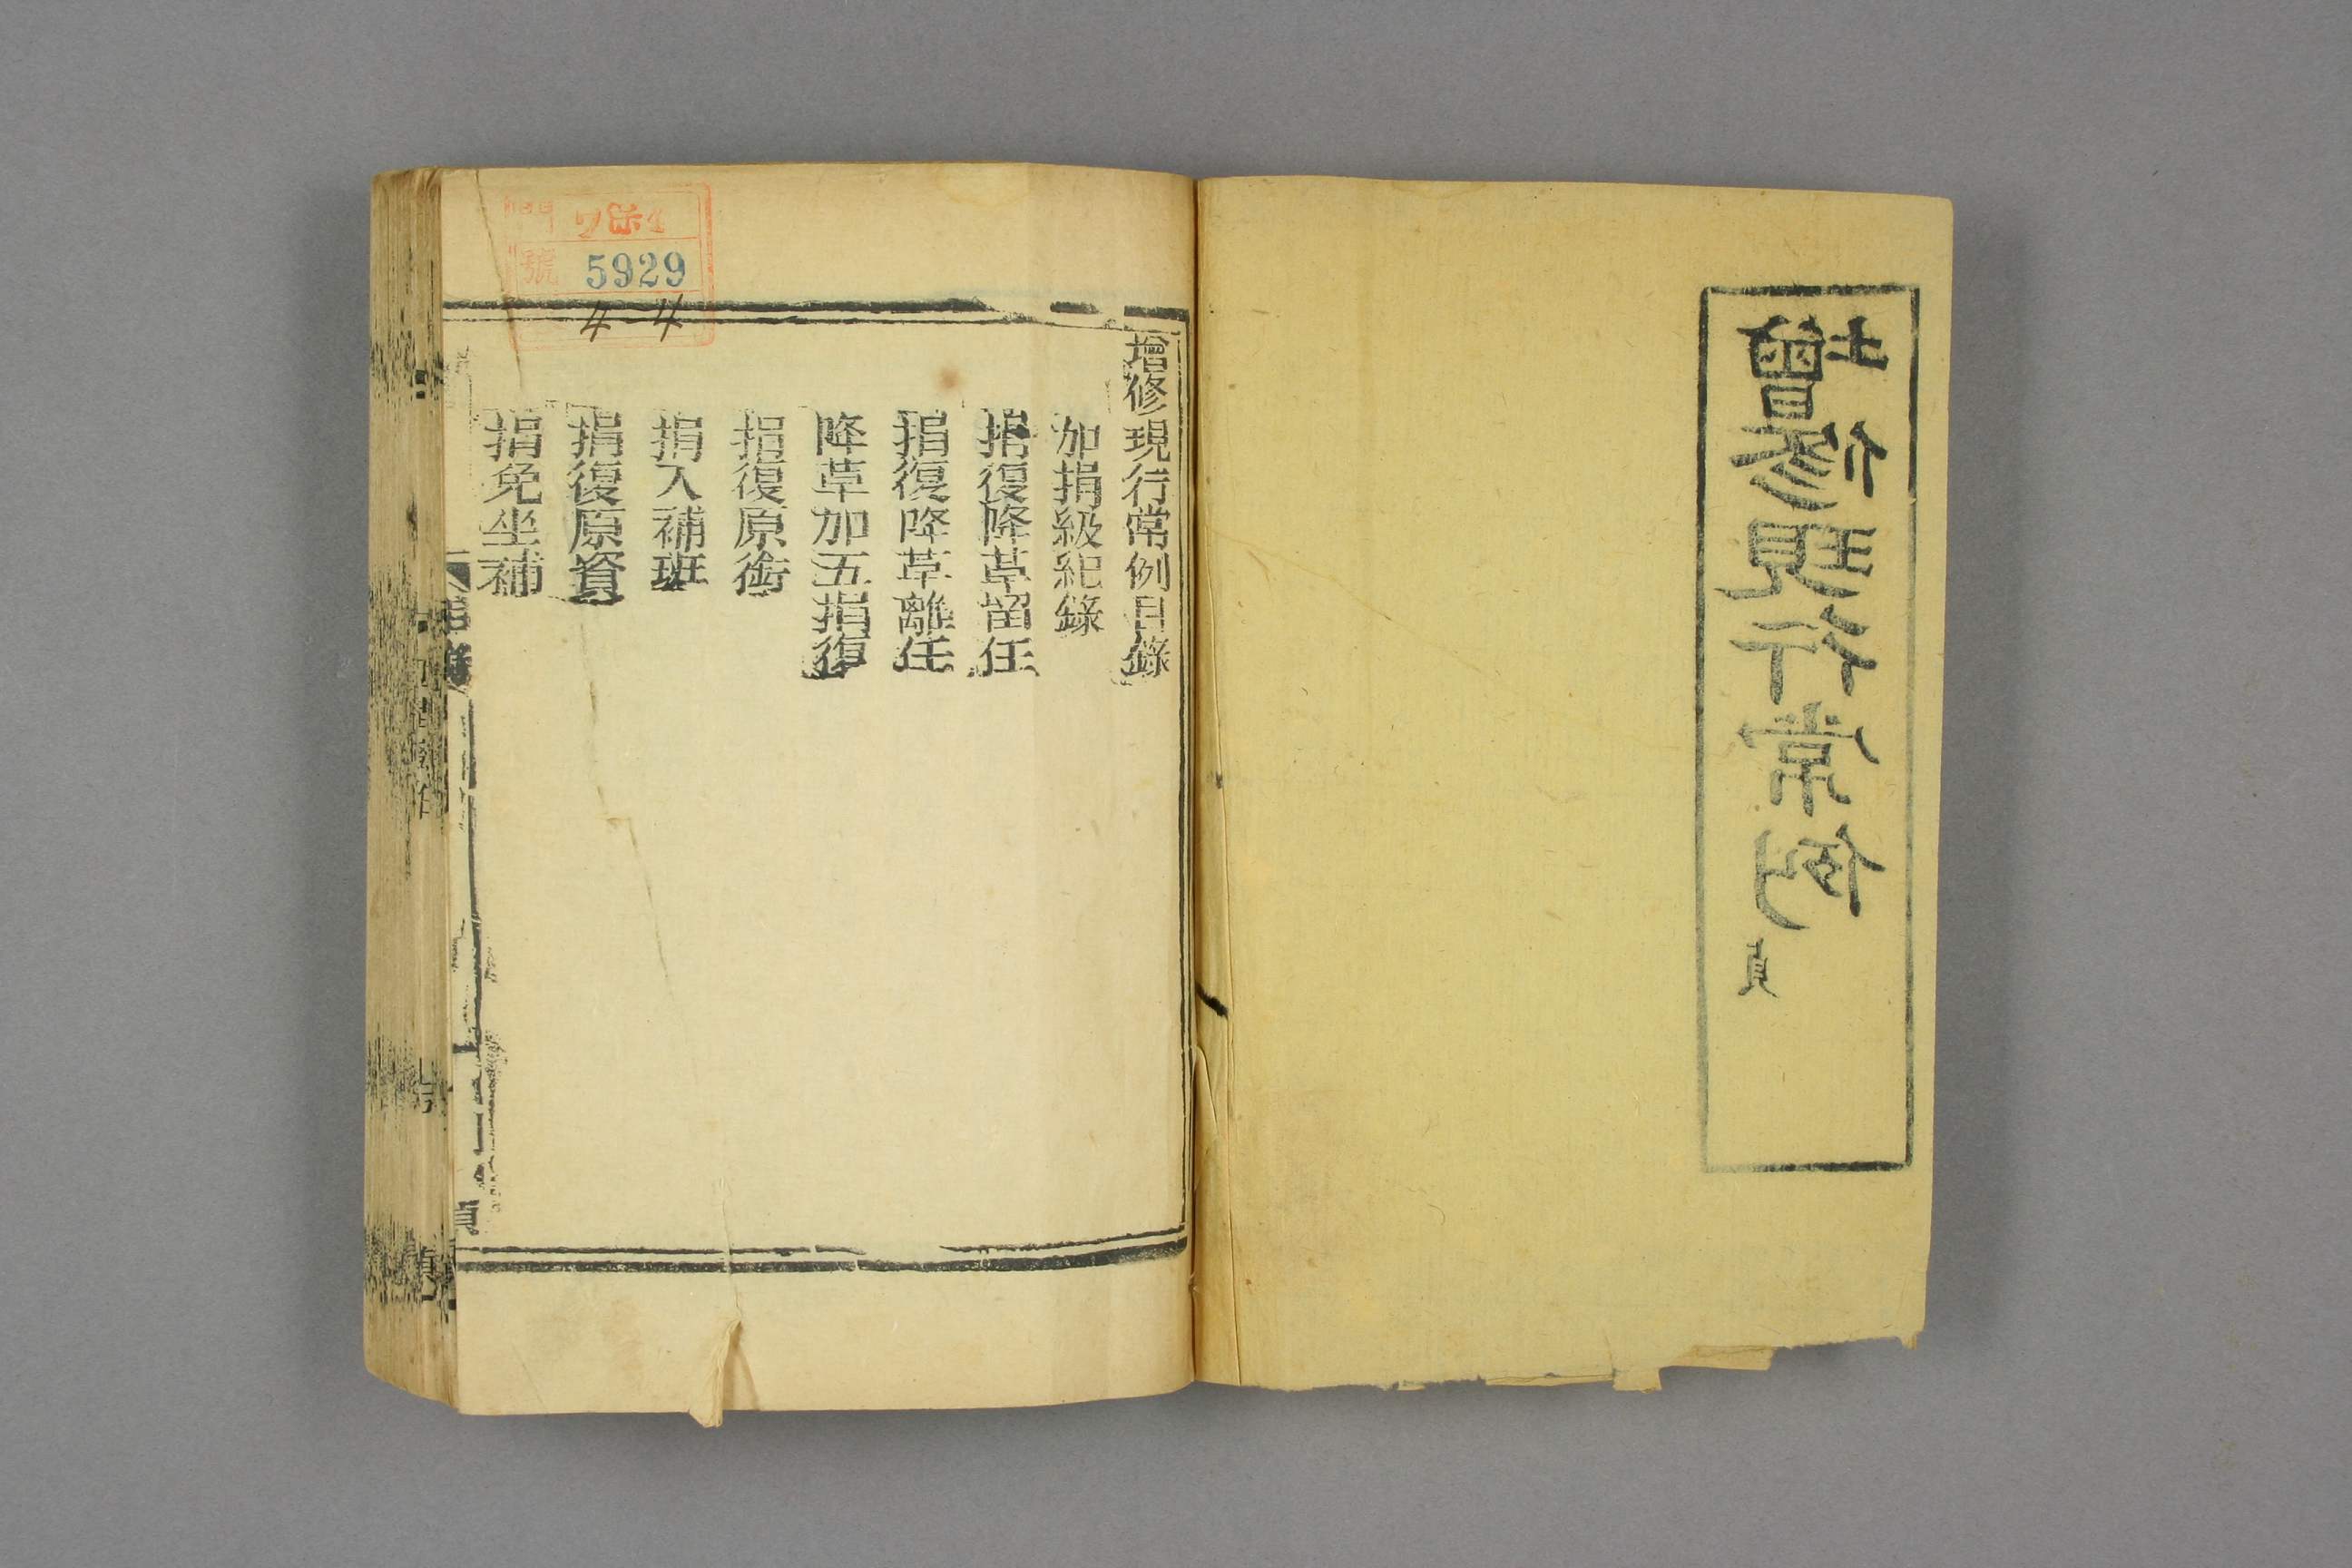 增修現行常例貞
增修現行常例目錄
加捐級紀錄
捐復降革留任
捐復降革離任
降革加五捐復
捐復原銜
捐入補班
捐復原資
捐免坐補
門
號 5929
4-4
貞